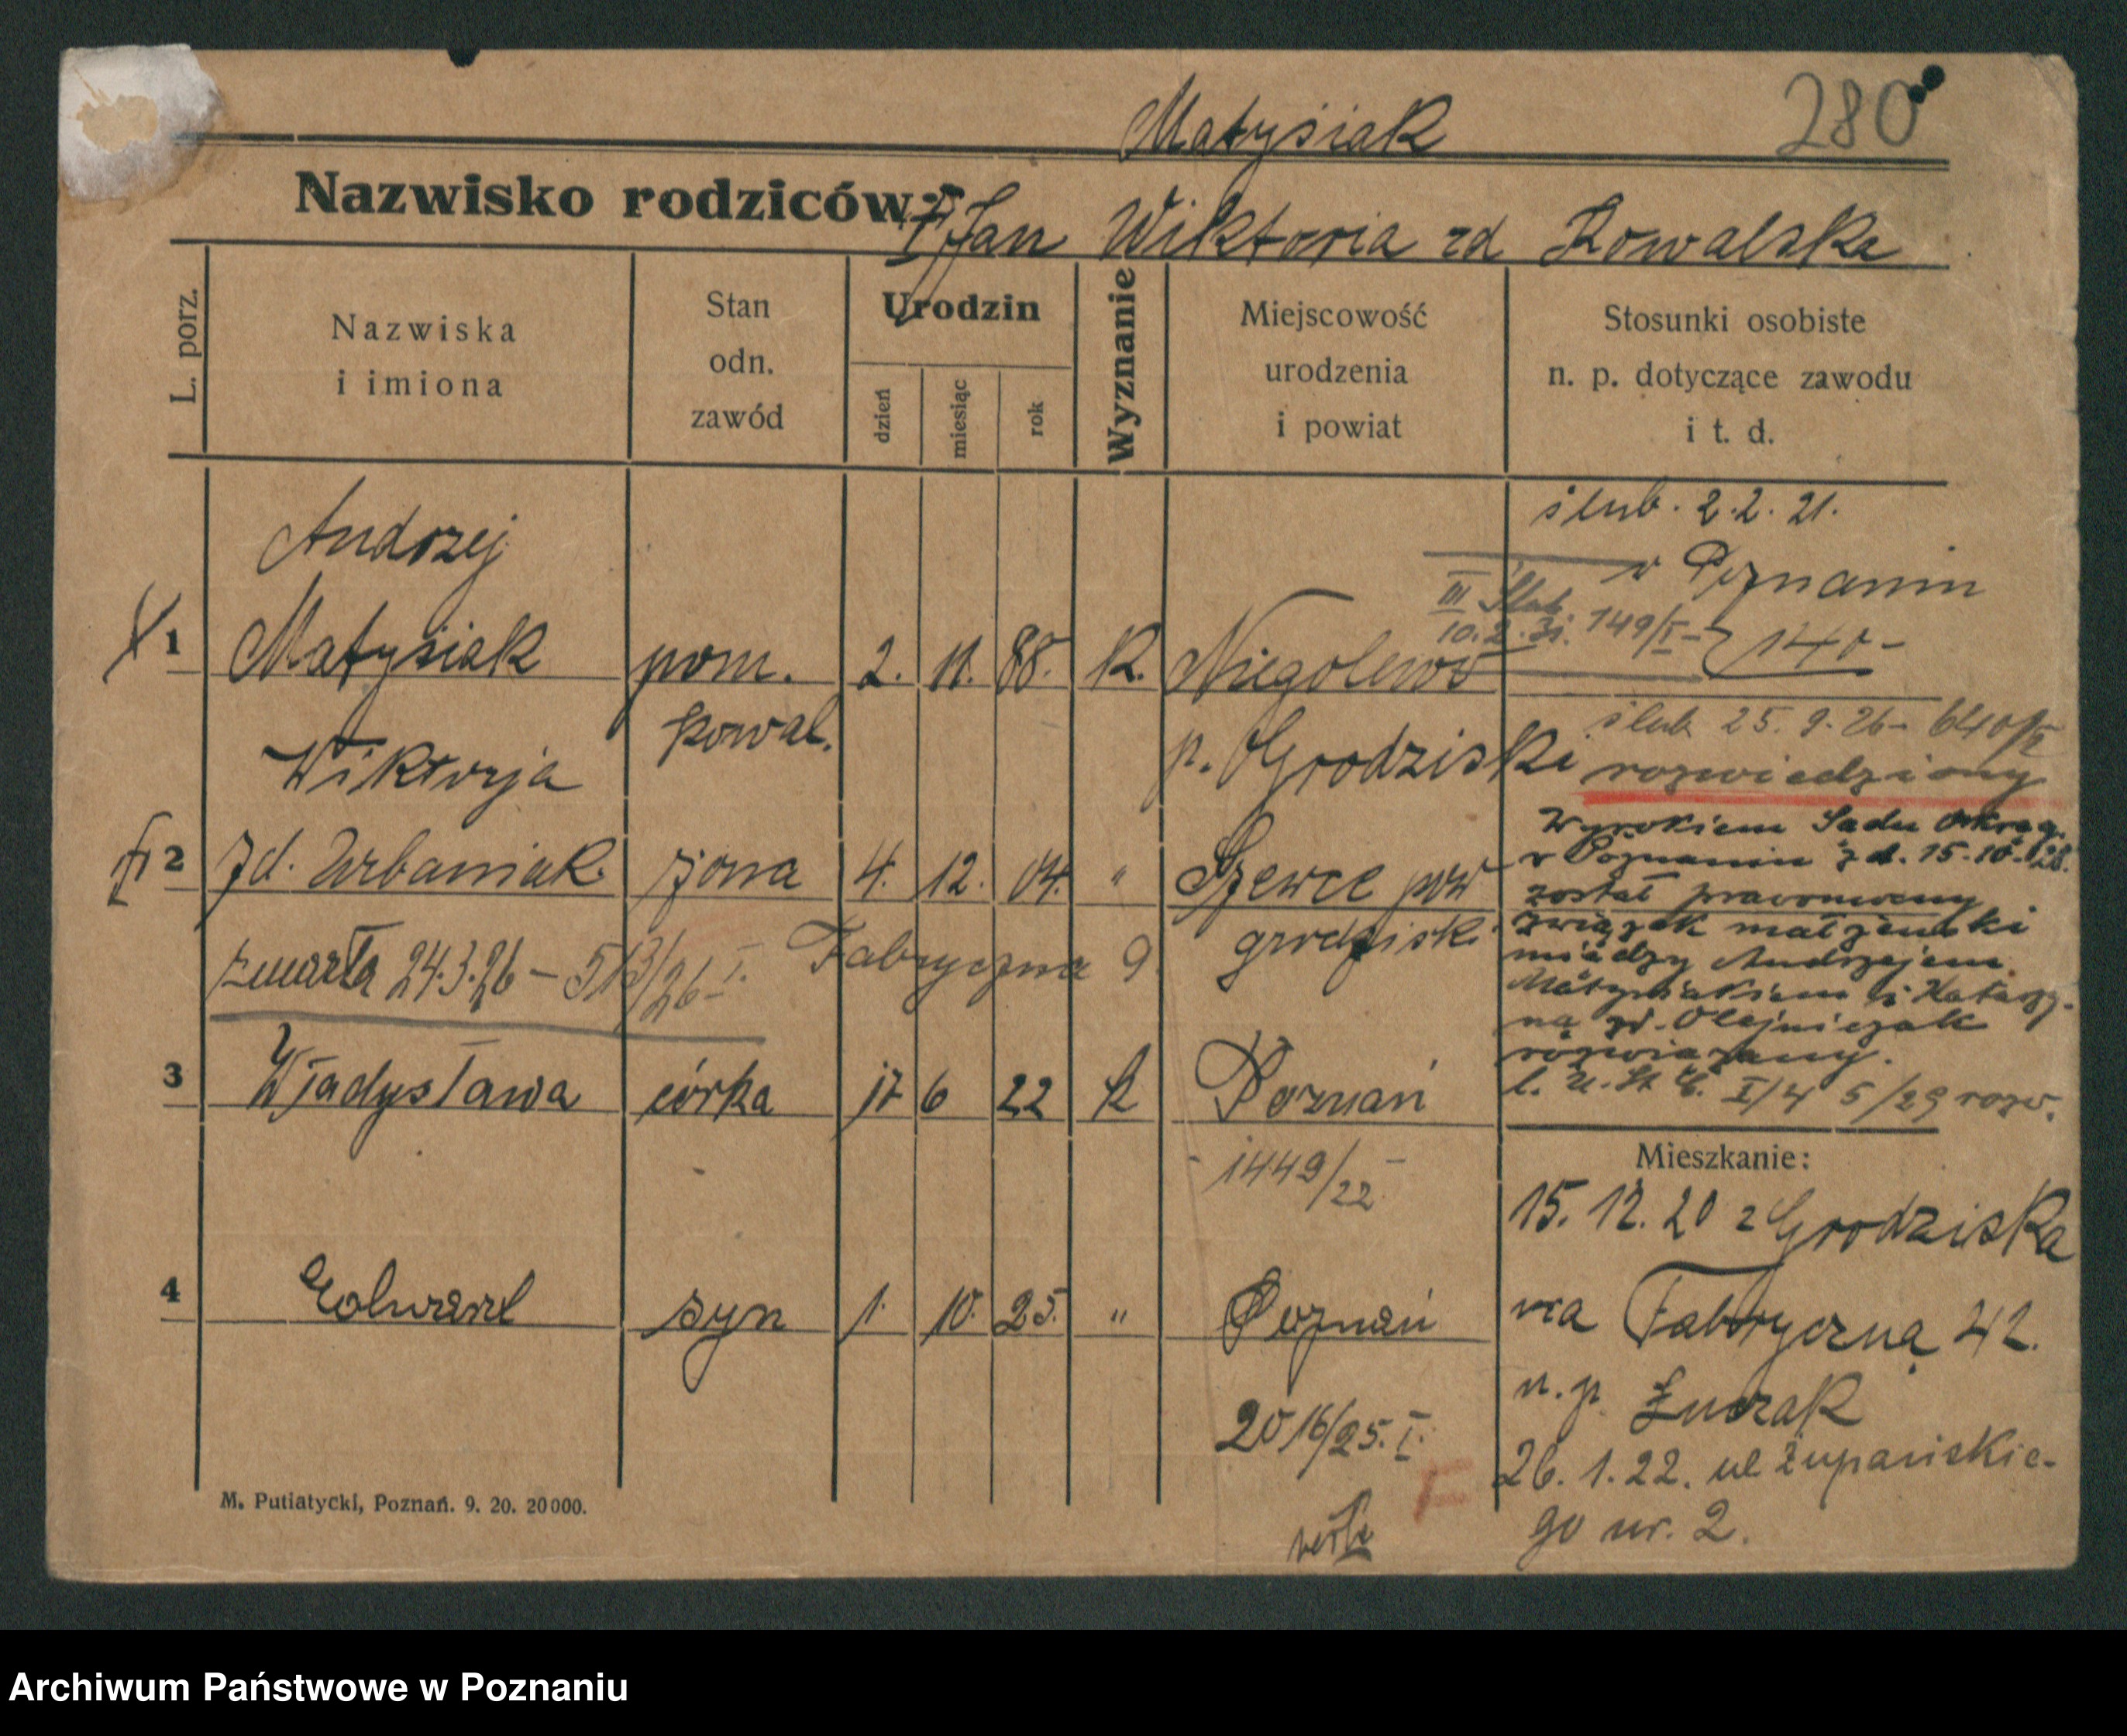 Matysiak
280
Nazwisko rodziców: Jan Wiktoria zd Kowalska
L. porz.
Nazwiska
i imiona
Stan
odn.
zawód
Urodzin
dzień
miesiąc
rok
Wyznanie
Miejscowość
urodzenia
i powiat
Stosunki osobiste
n. p. dotyczące zawodu
i t. d.
ślub. 2.2.21.
w Poznaniu
III Ślub
10.2.31. 149/I
140-
Andrzej
1 Matysiak pom. 2. 11. 88. K. Niegolewo
kowal. p. Grodziski
ślub 25.9.26 - 640/II
rozwiedziony
Wiktorja
2 zd. Urbaniak żona 4. 12. 04. " Szewce pow
grodzisk.
zmarła 24.3.26 - 513/26 I. Fabryczna 9
Wyrokiem Sądu Okręg.
w Poznaniu z d. 15.10.28.
został prawomocny
związek małżeński
między Andrzejem
Matysiakiem i Katarzy-
ną zd. Olejniczak
rozwiązany.
l. U. St. C. I/4 5/29 rozw.
3 Władysława córka 17 6 22 K Poznań
- 1449/22 -
4 Edward syn 1. 10. 25. " Poznań
2016/25. I.
Mieszkanie:
15. 12. 20 z Grodziska
na Fabryczną 42.
u. p. Łuczak
26. 1. 22. ul Żupańskie-
go nr. 2.
F
M. Putiatycki, Poznań. 9. 20. 20000.
Archiwum Państwowe w Poznaniu